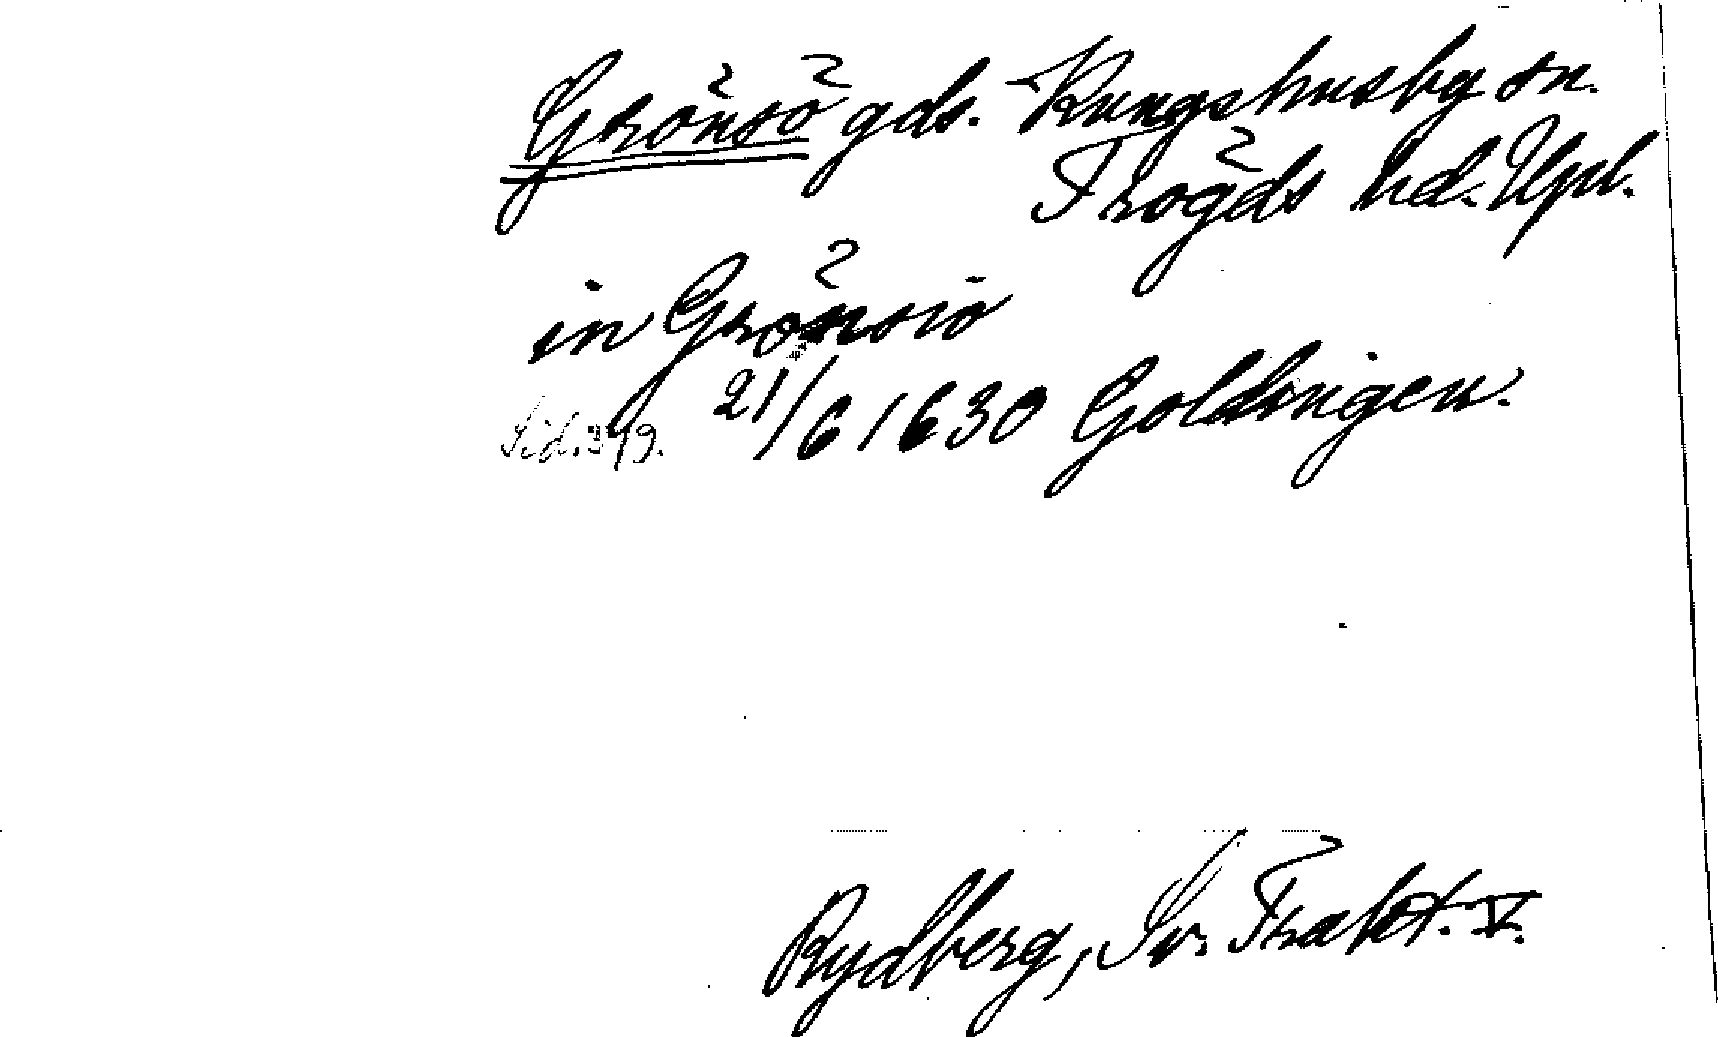 Grönsö gds. Kungshusby sn.
Trögds hd. Upl.
in Grönsiö
Sid. 349. 21/6 1630 Goldingen.
Rydberg, Sv. Trakt. V.